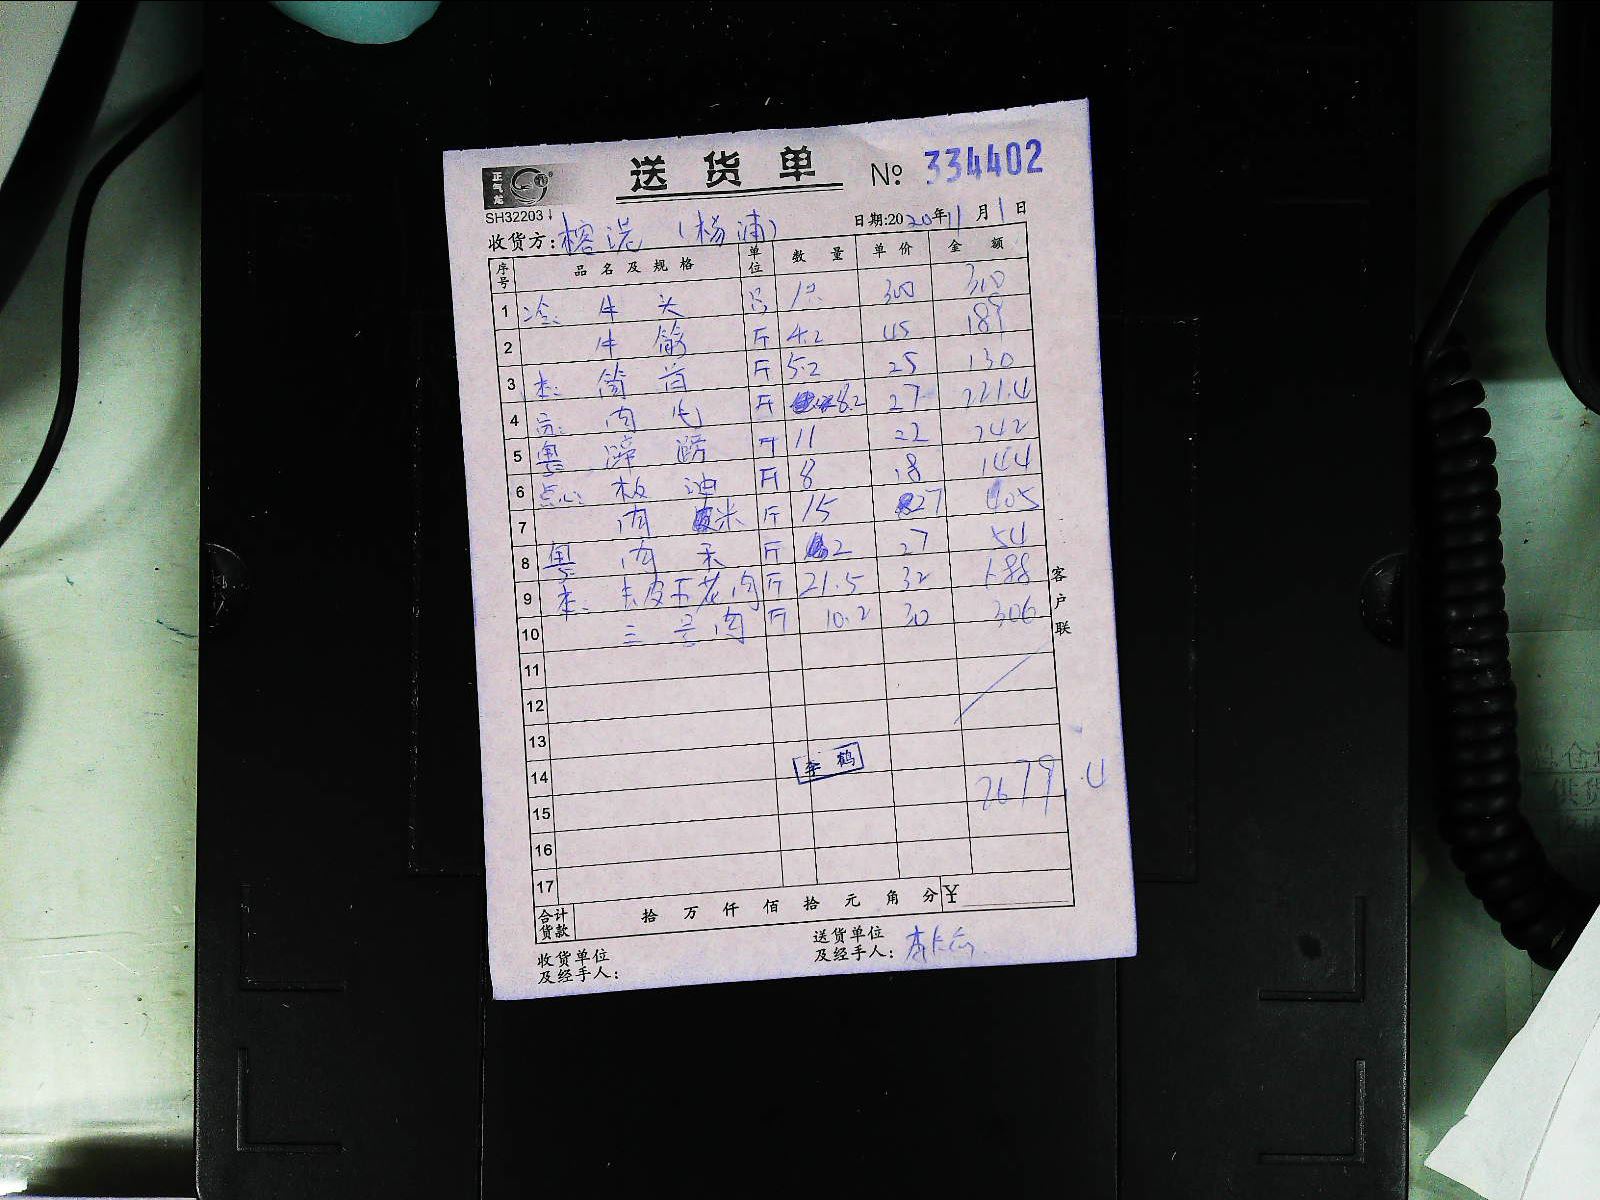 正气龙
送货单 № 334402
SH32203
收货方: 榕港 (杨浦) 日期:2020年11月1日
序号 品名及规格 单位 数量 单价 金额
1 冷: 牛头 只 1只 300 300
2 牛筋 斤 4.2 45 189
3 本: 筒首 斤 5.2 25 130
4 肉 斤 8.2 27 221.4
5 粤 蹄膀 斤 11 22 242
6 点心: 板油 斤 8 18 144
7 肉米 斤 15 27 405
8 粤 肉禾 斤 2 27 54
9 本: 去皮五花肉 斤 21.5 32 688
10 三号肉 斤 10.2 30 306
11
12
13
14 李鹤
2679.4
15
16
17
合计货款 拾 万 仟 佰 拾 元 角 分 ¥
收货单位及经手人:
送货单位及经手人:
客户联